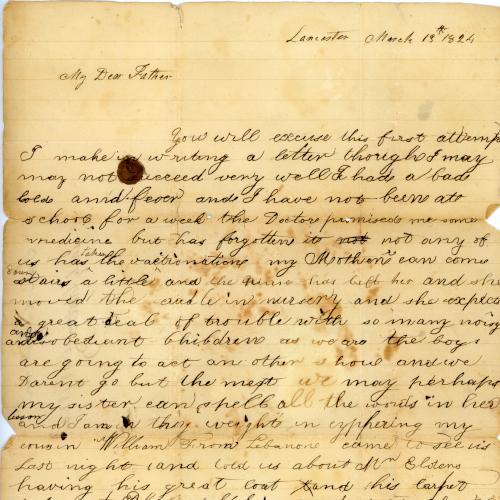 Lancaster March 13th 1824
My Dear Father
You will excuse this first attemp
I make in writing a letter though I may
may not succeed very well I had a bad
cold and fever and I have not been at
school for a week the Doctore promised me some
medicine but has forgotten it not not any of
us has taken the vactionations my Mother can come
down stairs a little and the nurse has left her and she
moved the cradle in nursery and she expects
a great deal of trouble with so many noisy
and disobediant Children as we are the boys
are going to act an other s how and we
Darent go but the next we may perhaps
my sister can spell all the words in her
lesson and I am in thry weight in cyphering my
cousin William From Lebanone came to see us
Last night and told us about Mrs Elders
having his great coat and his carpet